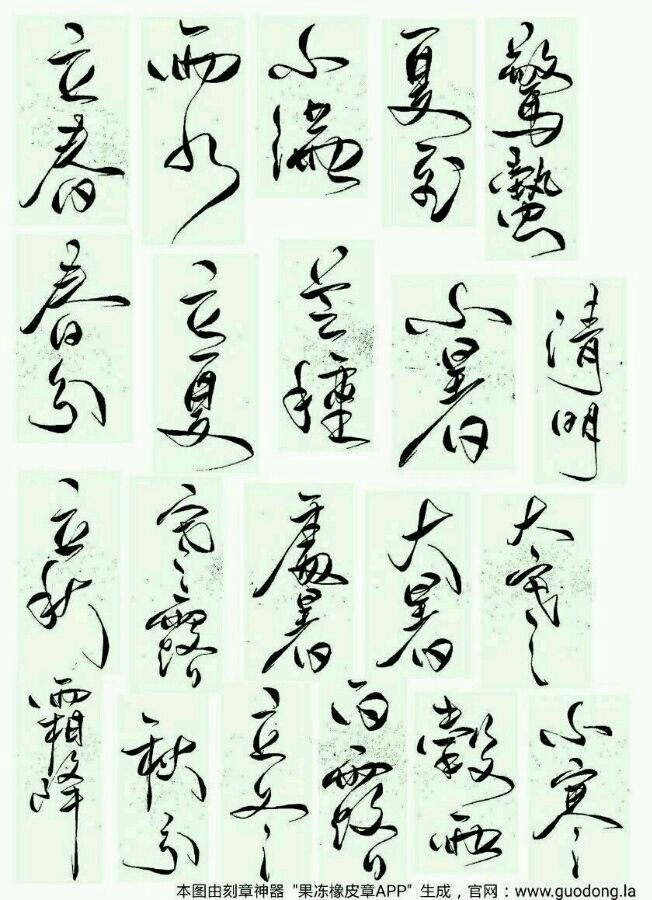 立春
雨水
小滿
夏至
驚蟄
春分
立夏
芒種
小暑
清明
立秋
寒露
處暑
大暑
大寒
霜降
秋分
立冬
白露
穀雨
小寒
本图由刻章神器 "果冻橡皮章APP" 生成，官网：www.guodong.la